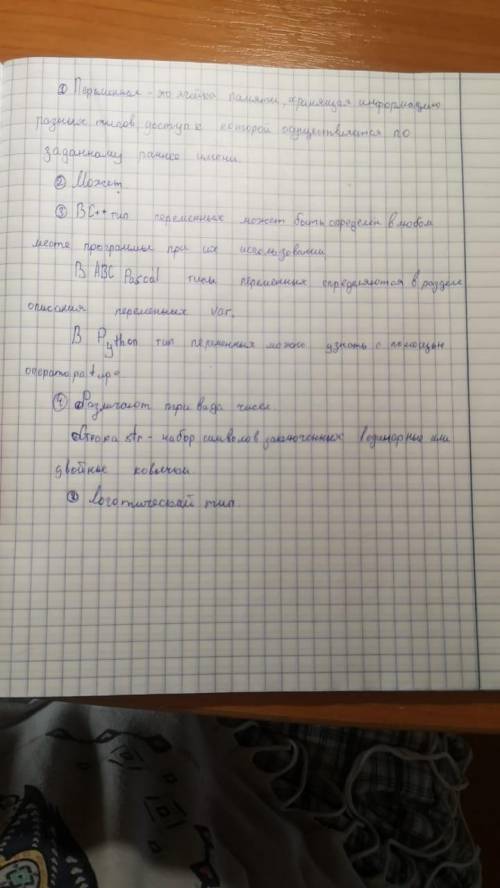 ① Переменная - это ячейка памяти, хранящая информацию
разных типов, доступ к которой осуществляется по
заданному ранее имени.
② Может.
③ В C++ тип переменных может быть определен в любом
месте программы при их использовании
В ABC Pascal типы переменных определяются в разделе
описания переменных var.
В Python тип переменных можно узнать с помощью
оператора type
④ Различают три вида чисел.
Строка str - набор символов заключенных в одинарные или
двойные ковычки
Логический тип